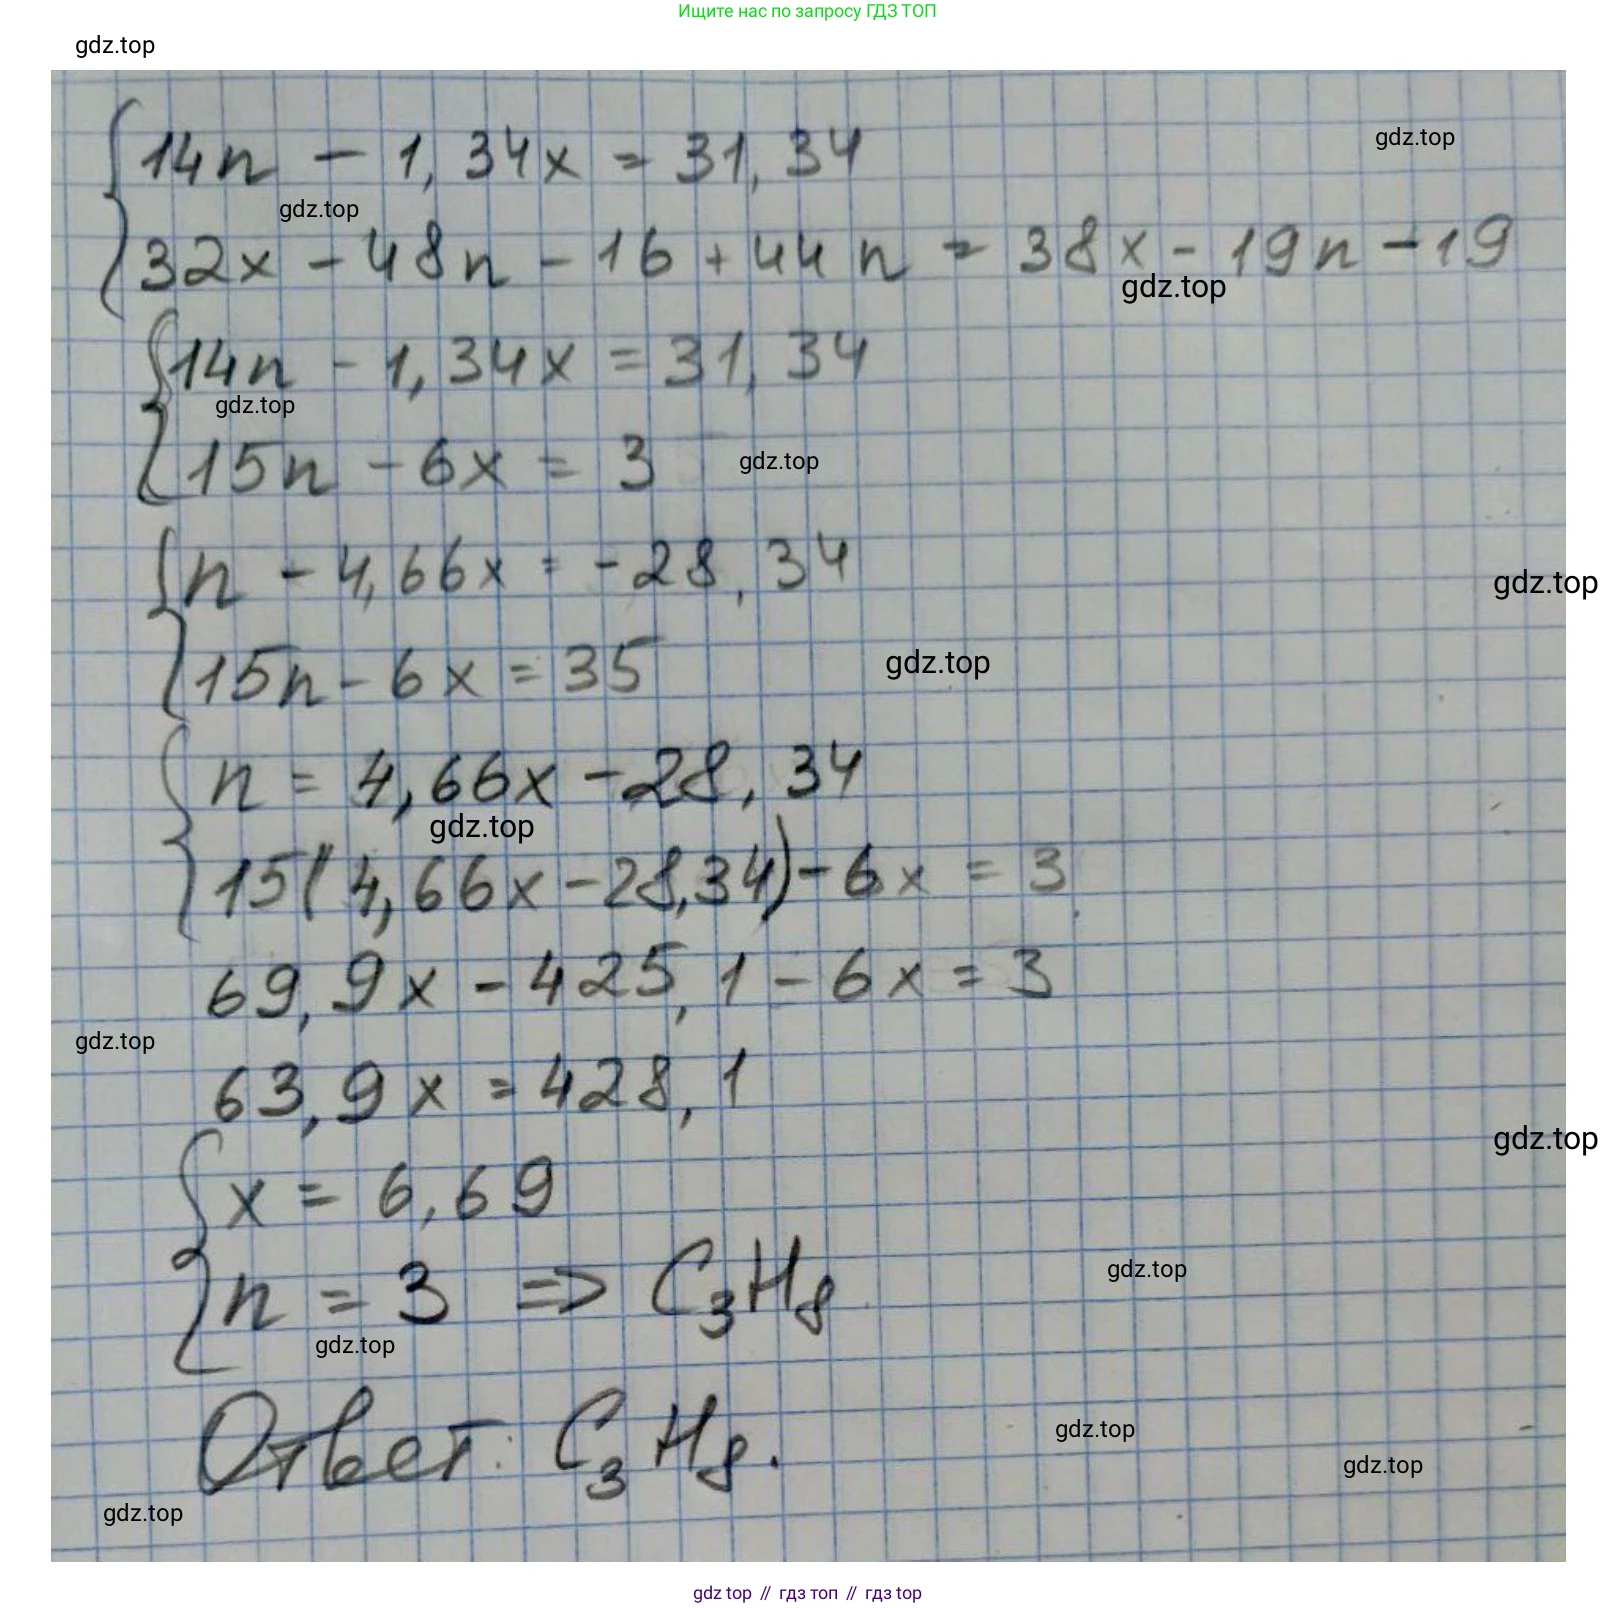 Ищите нас по запросу ГДЗ ТОП
gdz.top
14n - 1,34x = 31,34
gdz.top
gdz.top
32x - 48n - 16 + 44n = 38x - 19n - 19
gdz.top
14n - 1,34x = 31,34
gdz.top
15n - 6x = 3
gdz.top
n - 4,66x = -28,34
gdz.top
15n - 6x = 35
gdz.top
n = 4,66x - 28,34
gdz.top
15(4,66x - 28,34) - 6x = 3
69,9x - 425,1 - 6x = 3
gdz.top
63,9x = 428,1
gdz.top
x = 6,69
n = 3 => C3H8
gdz.top
gdz.top
Ответ: C3H8.
gdz.top
gdz.top
gdz.top
gdz top // гдз топ // гдз top